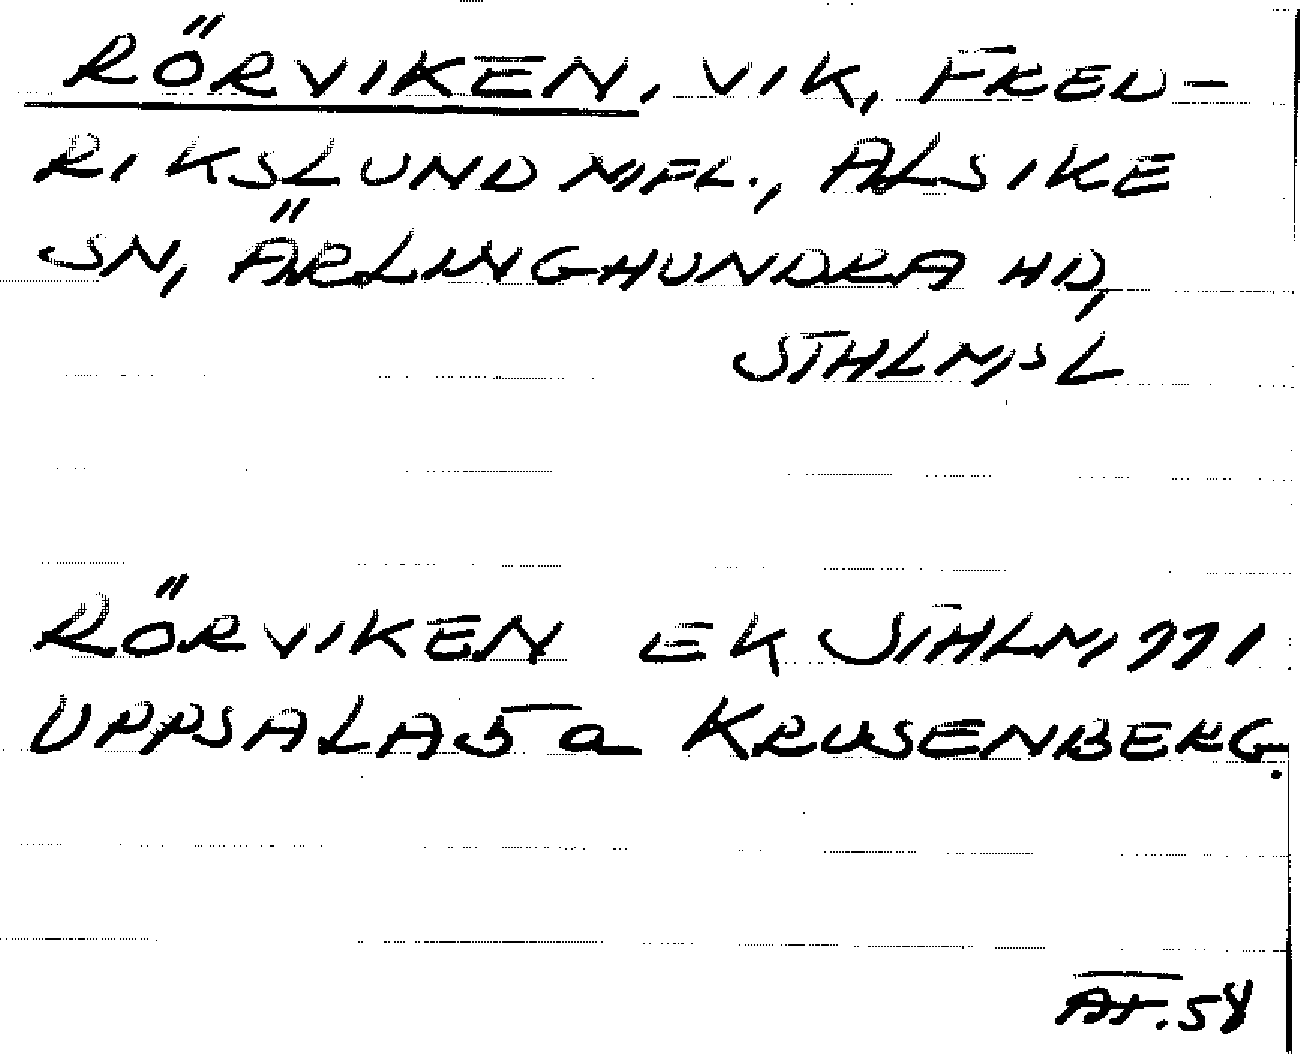 RÖRVIKEN, VIK, FRED-
RIKSLUND M.FL., ALSIKE
SN, ÄRLINGHUNDRA HD,
STHLMS L
RÖRVIKEN EK STHLM 771
UPPSALA 5 a KRUSENBERG.
AT. 58